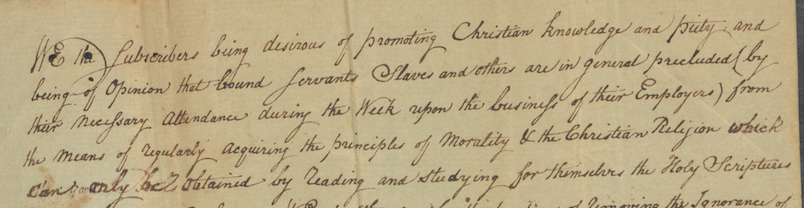 WE the Subscribers being desirous of promoting Christian knowledge and piety and
being of Opinion that bound Servants Slaves and others are in general precluded (by
their necessary Attendance during the Week upon the business of their Employers) from
the means of regularly acquiring the principles of Morality & the Christian Religion which
can only be obtained by reading and studying for themselves the Holy Scriptures
of removing the Ignorance of